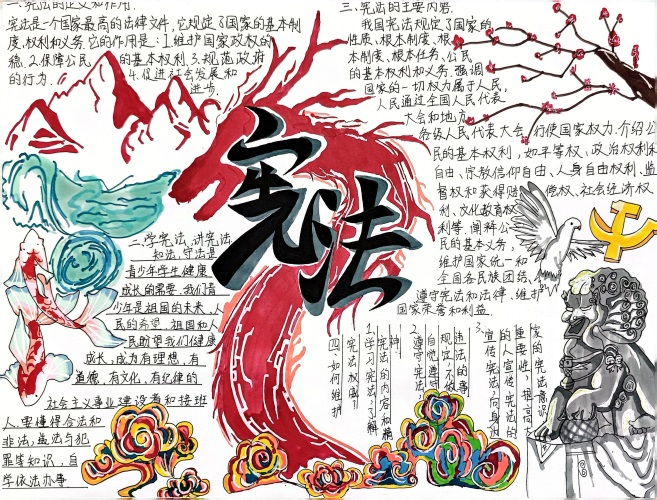 一.宪法的定义和作用.
宪法是一个国家最高的法律文件,它规定了国家的基本制
度、权利和义务.它的作用是:1.维护国家政权的
稳.2.保障公民的基本权利 3.规范政府
的行为. 4.促进社会发展和
进步.
宪法
二.学宪法、讲宪法
和法,守法是
青少年学生健康
成长的需要,我们青
少年是祖国的未来,人
民的希望.祖国和人
民盼望我们健康
成长,成为有理想、有
道德、有文化、有纪律的
社会主义事业建设者和接班
人.要懂得合法和
非法、违法与犯
罪等知识,自
学依法办事
三、宪法的主要内容.
我国宪法规定了国家的
性质、根本制度、根
本制度、根本任务、公民
的基本权利和义务.强调
国家的一切权力属于人民,
人民通过全国人民代表
大会和地方
各级人民代表大会 行使国家权力.介绍公
民的基本权利,如平等权、政治权利和
自由、宗教信仰自由、人身自由权利、监
督权和获得赔偿权、社会经济权
利、文化教育权
利等,阐释公
民的基本义务,
维护国家统一和
全国各民族团结、
遵守宪法和法律、维护
国家荣誉和利益.
四、如何维护
宪法权威!!
1.学习宪法:了解
宪法的内容和精
神.
2.遵守宪法:
自觉遵守
规定,不做
违法的事
3.宣传宪法:向身边
的人宣传宪法的
重要性,提高大
家的宪法意识